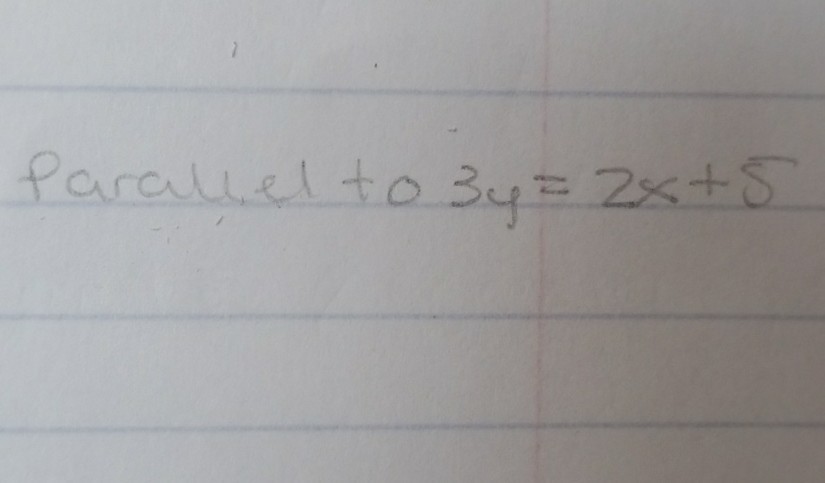 Parallel to 3y = 2x + 5